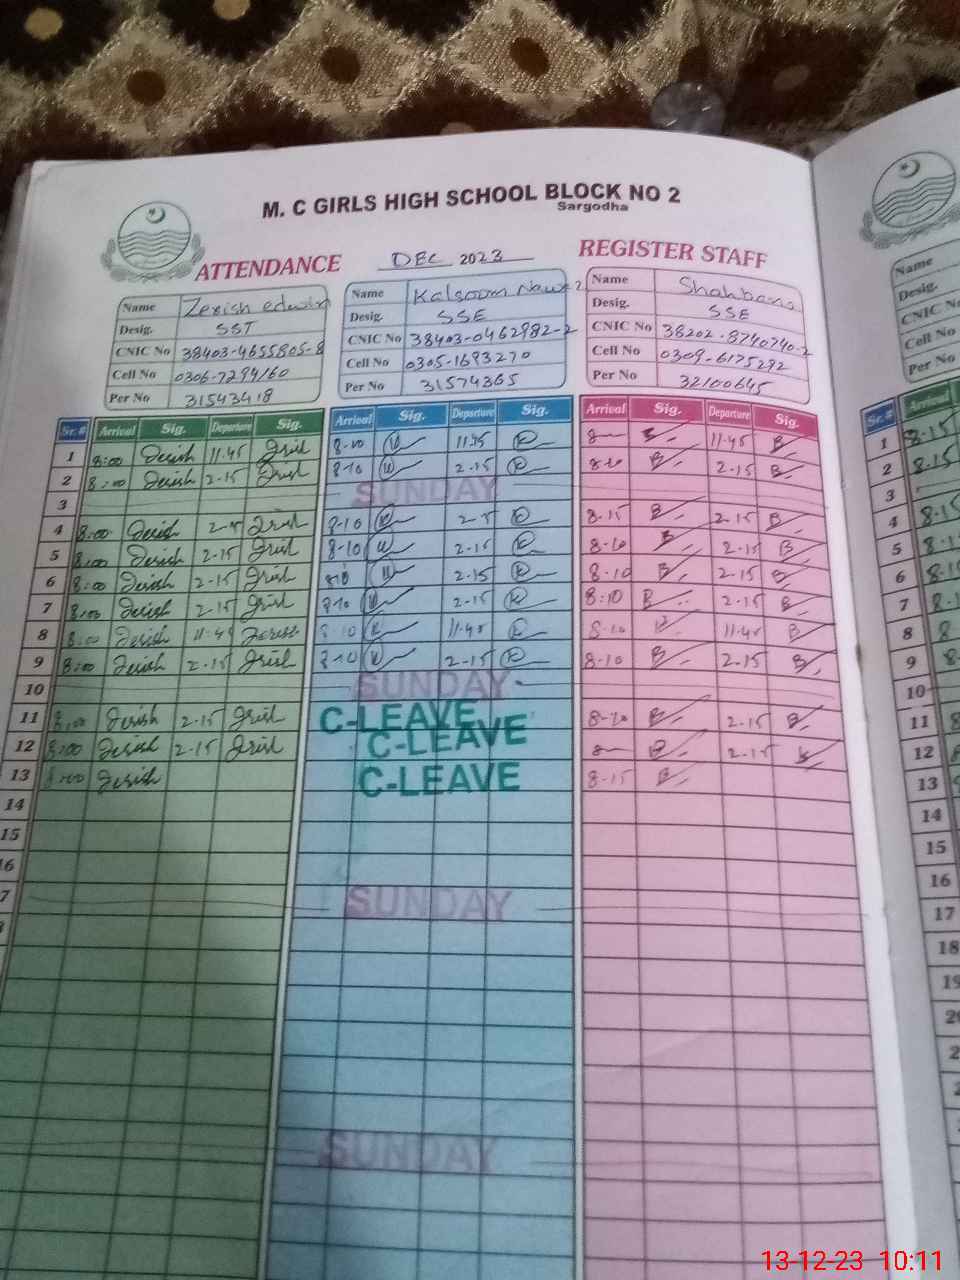 M. C GIRLS HIGH SCHOOL BLOCK NO 2
Sargodha
ATTENDANCE DEC 2023 REGISTER STAFF
Name Zerish edwin Name Kalsoom Nawaz Name Shahbano
Desig. SST Desig. SSE Desig. SSE
CNIC No 38403-4655805-8 CNIC No 38403-0462982-2 CNIC No 38202-8740740-2
Cell No 0306-7294160 Cell No 0305-1693270 Cell No 0309-6175292
Per No 31543418 Per No 31574365 Per No 32100645
Sr. # Arrival Sig. Departure Sig. Arrival Sig. Departure Sig. Arrival Sig. Departure Sig.
1 8:00 Zerish 11.45 8-10 11.45 8 11-45 B
2 8:00 Zerish 2-15 8-10 2-15 8-10 B 2-15 B
3 SUNDAY
4 8:00 Zerish 2-15 8-10 2-15 8-15 B 2-15 B
5 8:00 Zerish 2-15 8-10 2-15 8-10 B 2-15 B
6 8:00 Zerish 2-15 8-10 2-15 8-10 B 2-15 B
7 8:00 Zerish 2-15 8-10 2-15 8:10 B 2-15 B
8 8:00 Zerish 11-45 Zerish 8-10 11-45 8-10 B 11-45 B
9 8:00 Zerish 2-15 8-10 2-15 8-10 B 2-15 B
10 SUNDAY
11 8:00 Zerish 2-15 C-LEAVE 8-10 B 2-15 B
12 8:00 Zerish 2-15 C-LEAVE 8 B 2-15
13 8:00 Zerish C-LEAVE 8-15 B
14
15
16
7 SUNDAY
SUNDAY
Name
Desig.
CNIC No
Cell No
Per No
Sr. # Arrival
1 8-15
2 8-15
3
4 8-15
5
6
7
8
9
10
11
12
13
14
15
16
17
18
13-12-23 10:11